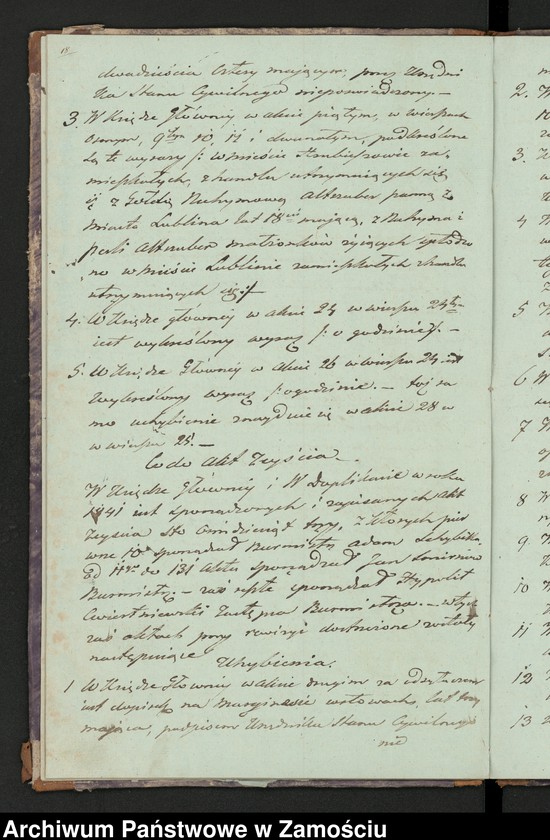 18
dwadzieścia cztery mającym, przez Urzędni
ka Stanu Cywilnego niepoświadczony.—
3. W Księdze Głównej w akcie piątym, w wierszach
Osmym, 9tym 10, 11 i dwunastym, podkreślone
są te wyrazy /: w mieście Hrubieszowie za
mieszkałych, z handlu utrzymujących się
z Gołdą Nuchymową Altszuler panną z
miasta Lublina lat 18 mającą, z Nuchyma i
Perli Altszuler małżonków żyjących
no w mieście Lublinie zamieszkałych z handlu
utrzymujących się :/
4. W Księdze głównej w akcie 24 w wierszu 24tym
jest wykreślony wyraz /: o godzinie :/ —
5. W Księdze Głównej w akcie 26 w wierszu 24 jest
wykreślony wyraz /: o godzinie. — toż sa
mo uchybienie znajduje się w akcie 28 w
w wierszu 25. —
Co do Akt Zejścia —
W Księdze Głównej i W Duplikacie w roku
1841 jest sporządzonych i zapisanych Akt
Zejścia Sto Ośmdziesiąt trzy, z których pier
wsze 10 sporządzał Burmistrz Adam
od 11go do 131 Aktu sporządzał Jan
Burmistrz — zaś resztę sporządzał Hypolit
Ćwiertniewski Zastępca Burmistrza. —
zaś aktach przy rewizyi dostrzeżone zostały
następujące Uchybienia,
1 W Księdze Głównej w akcie drugim za
jest dopisek na Marginesie w słowach, lat trzy
mająca, podpisem Urzędnika Stanu Cywilnego
nie
2.
3.
4
5
6
7
8
9
10
11
12
13
Archiwum Państwowe w Zamościu